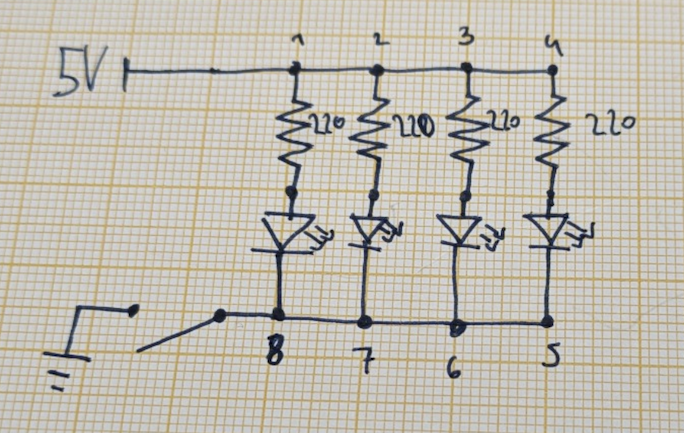 1 2 3 4
5V
220 220 220 220
8 7 6 5